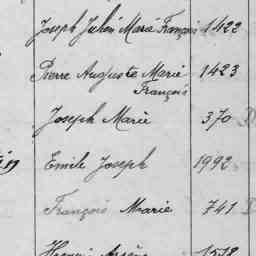 Joseph Julien Marie François 1422
Pierre Auguste Marie 1423
François
Joseph Marie 370 D
Emile Joseph 1992
François Marie 741 D
1518